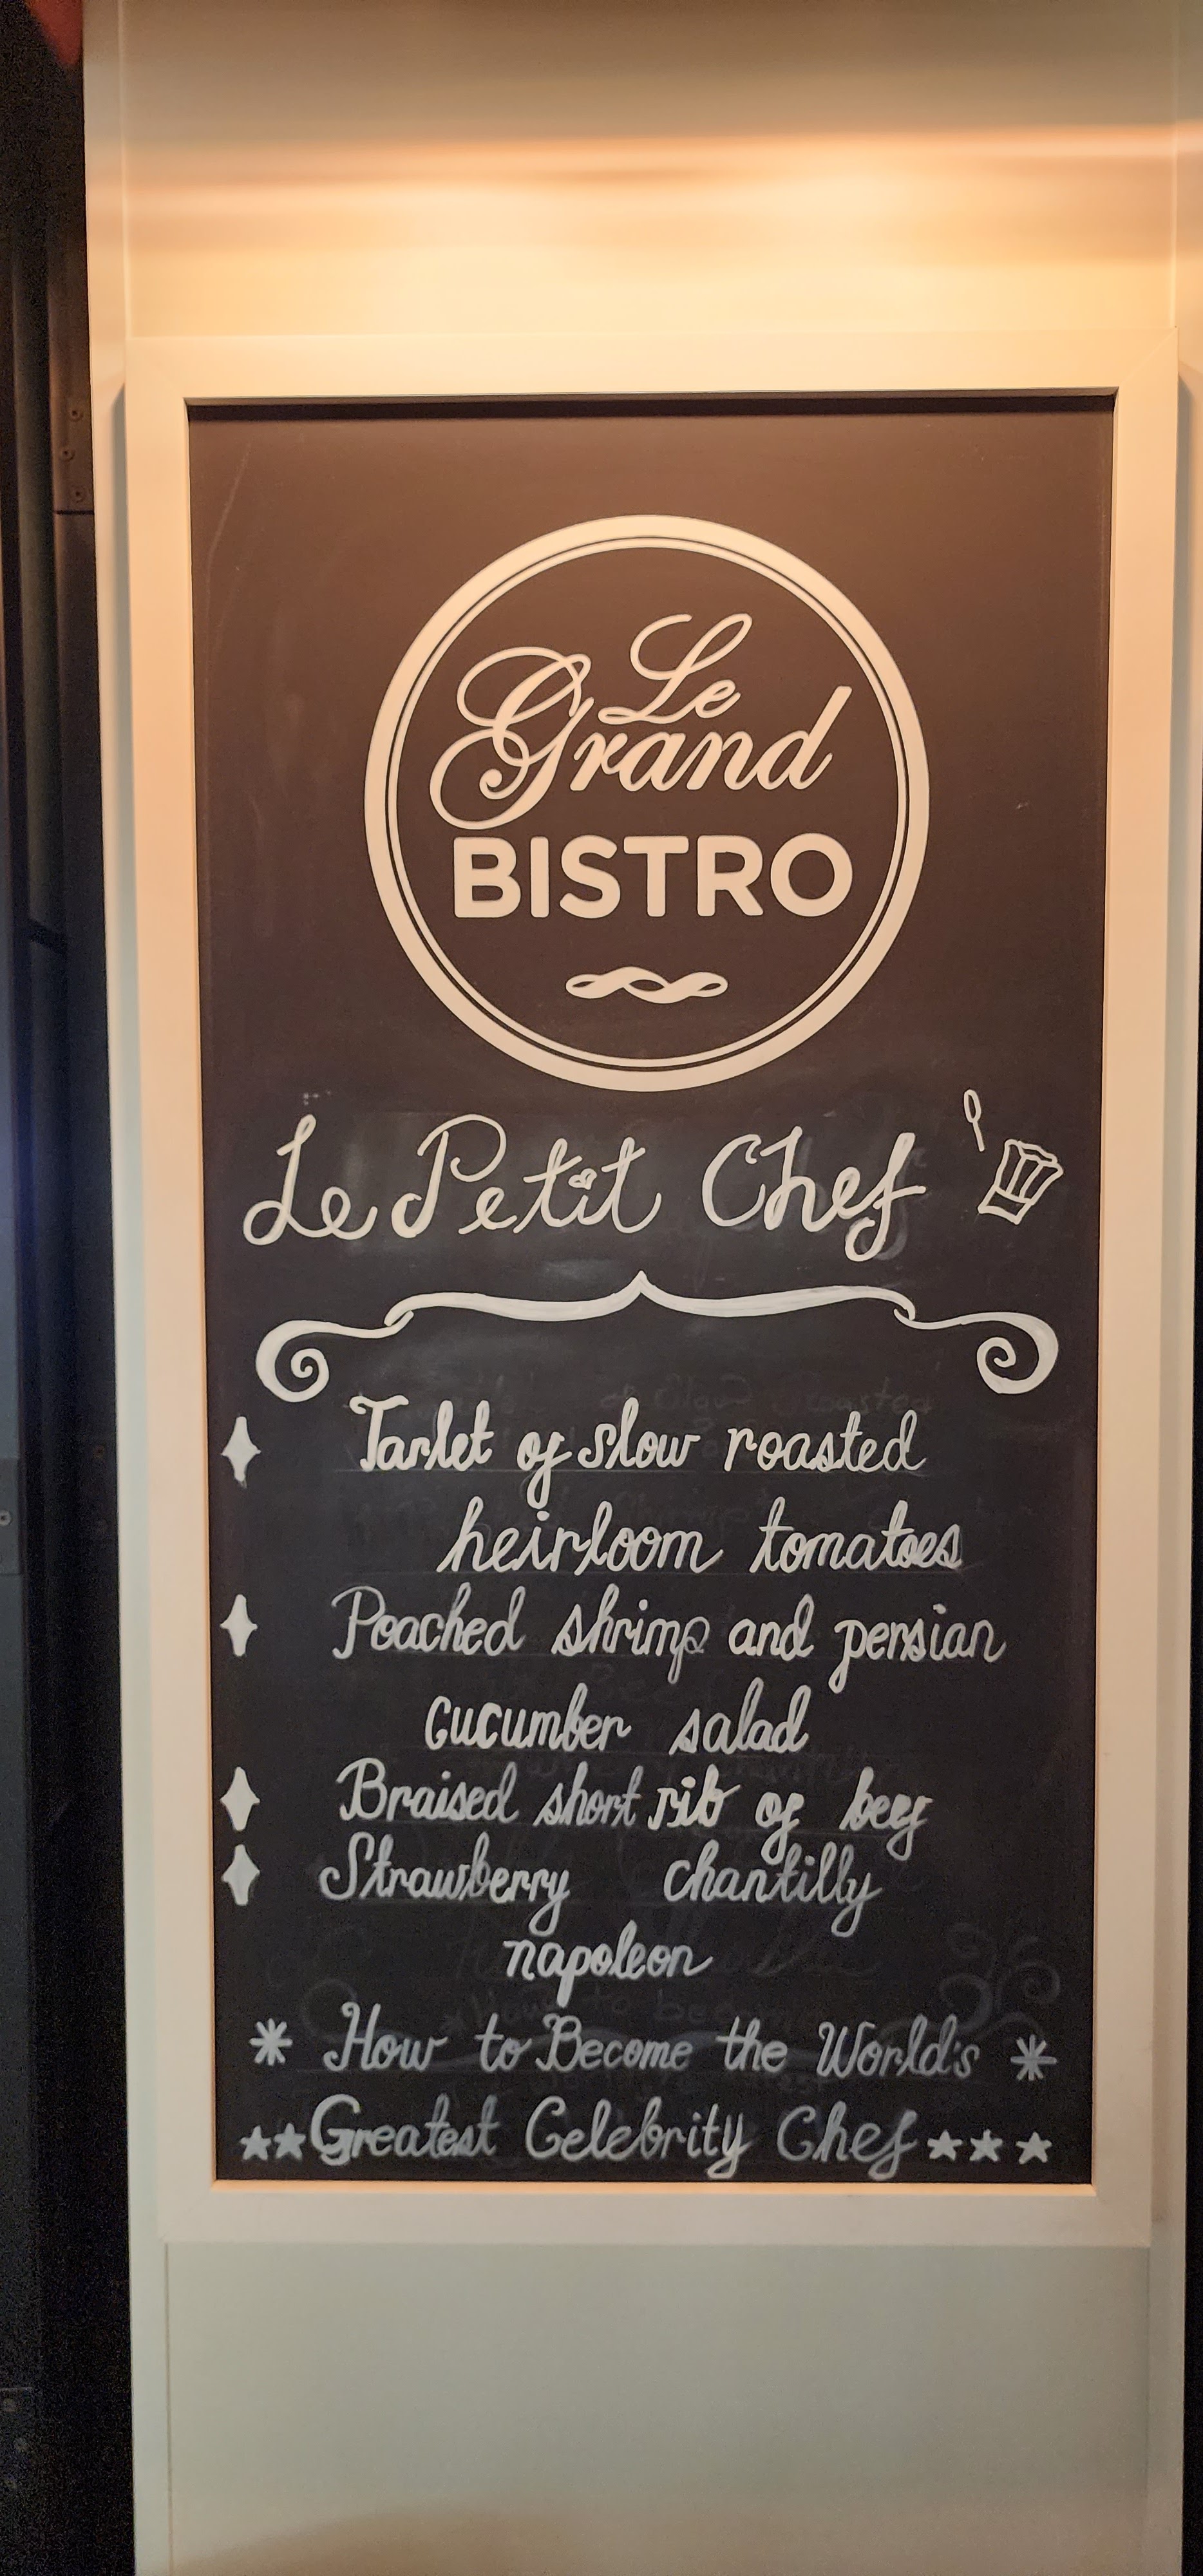 Le
Grand
BISTRO
Le Petit Chef
Tarlet of slow roasted
heirloom tomatoes
Poached shrimp and persian
cucumber salad
Braised short rib of beef
Strawberry chantilly
napoleon
How to Become the World's
Greatest Celebrity Chef